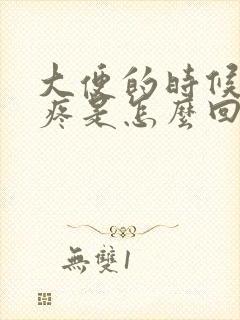 大便的時候
疼是怎麼回
無雙1